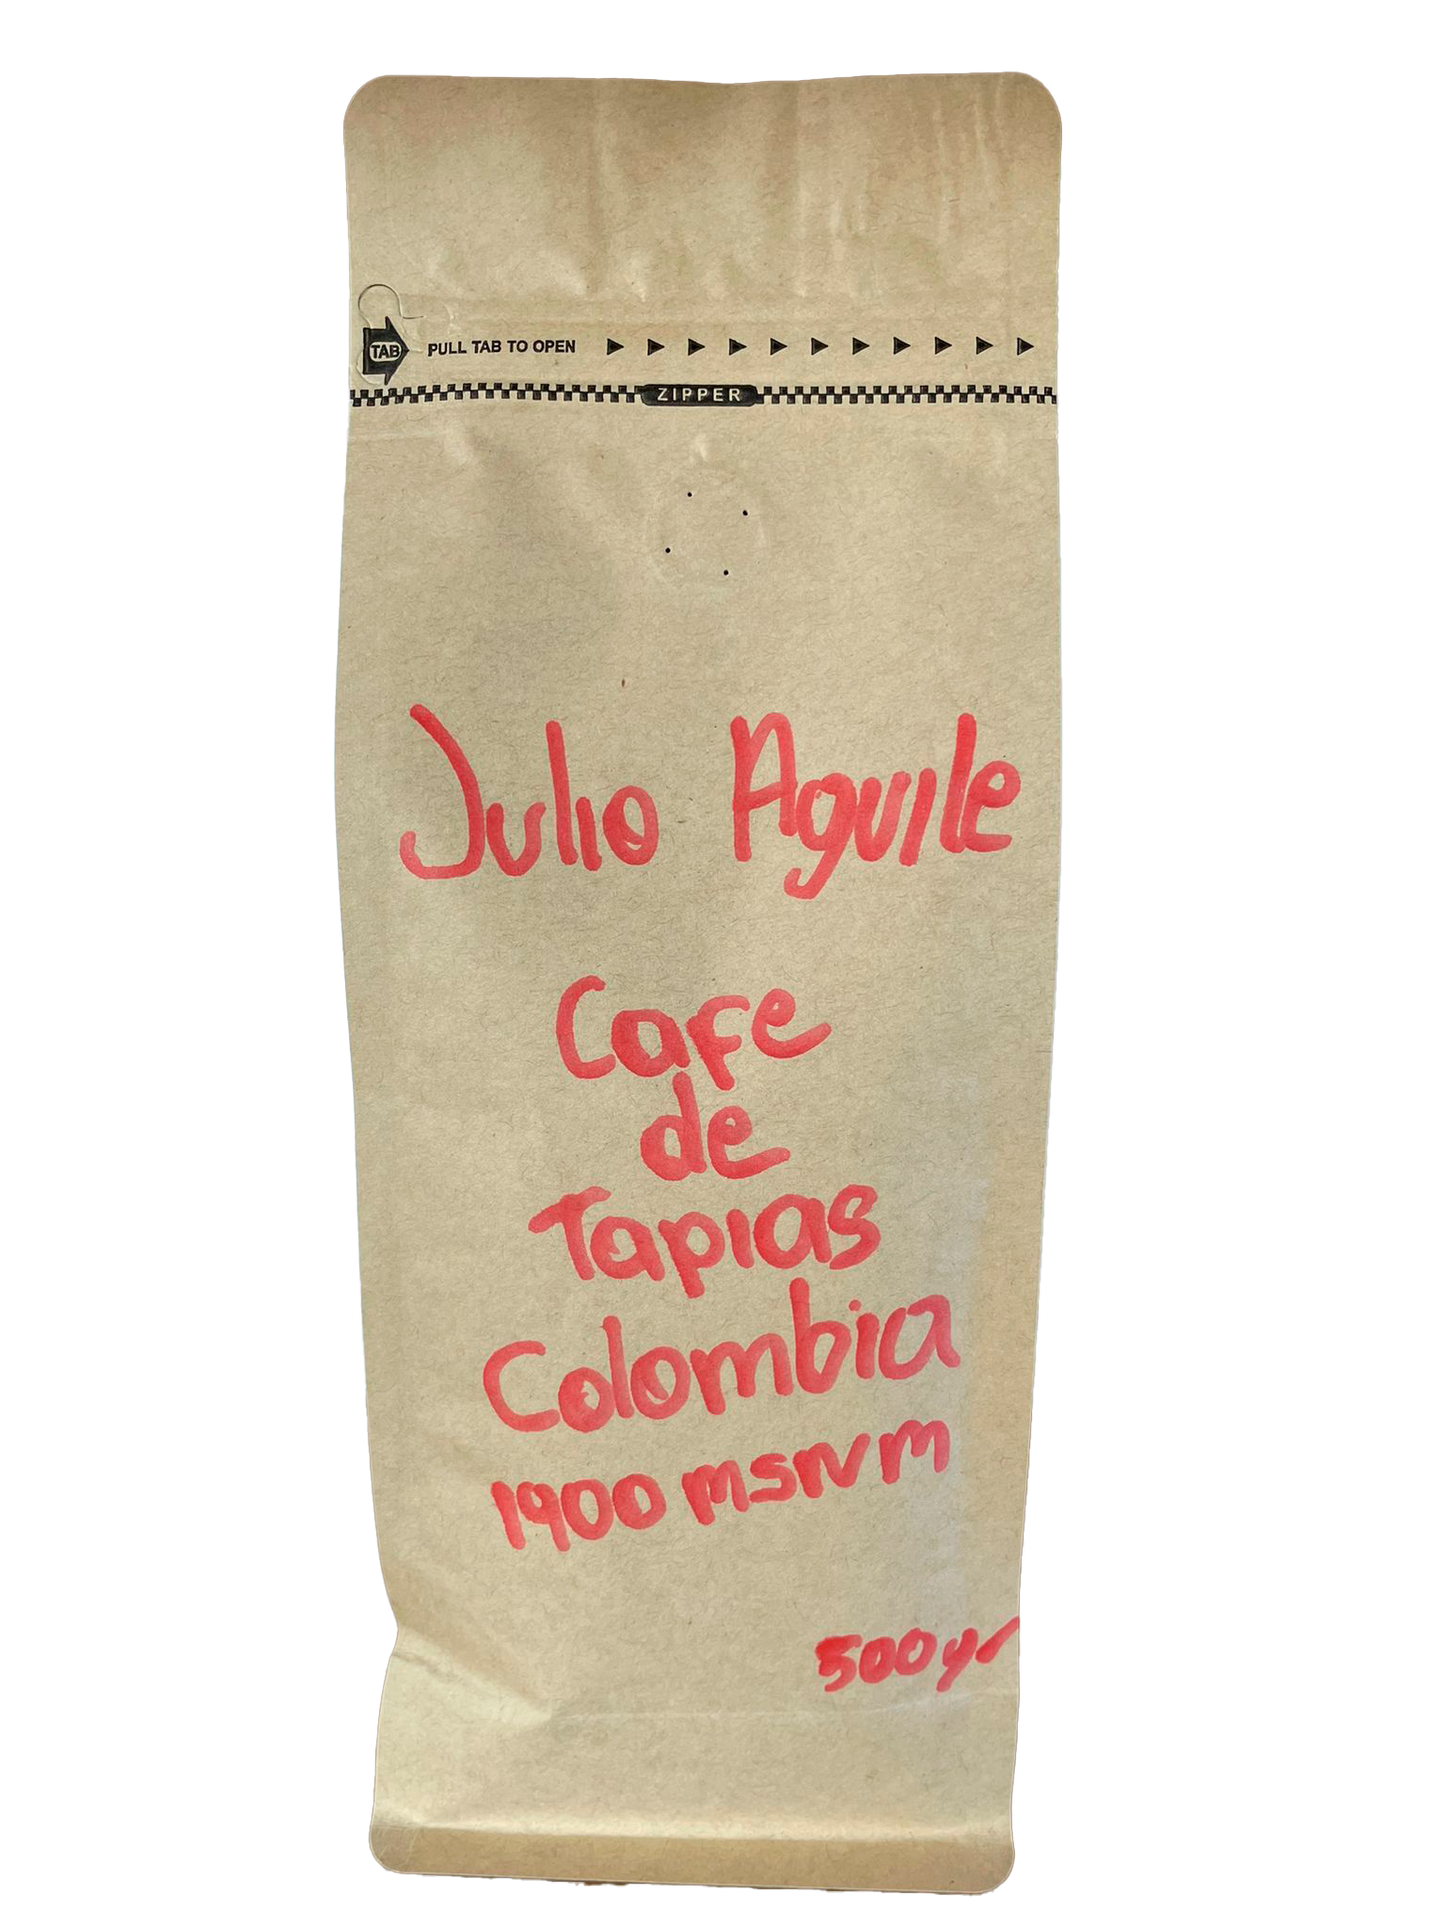 TAB PULL TAB TO OPEN
ZIPPER
Julio Aguile
Cafe
de
Tapias
Colombia
1900 msnvm
500gr